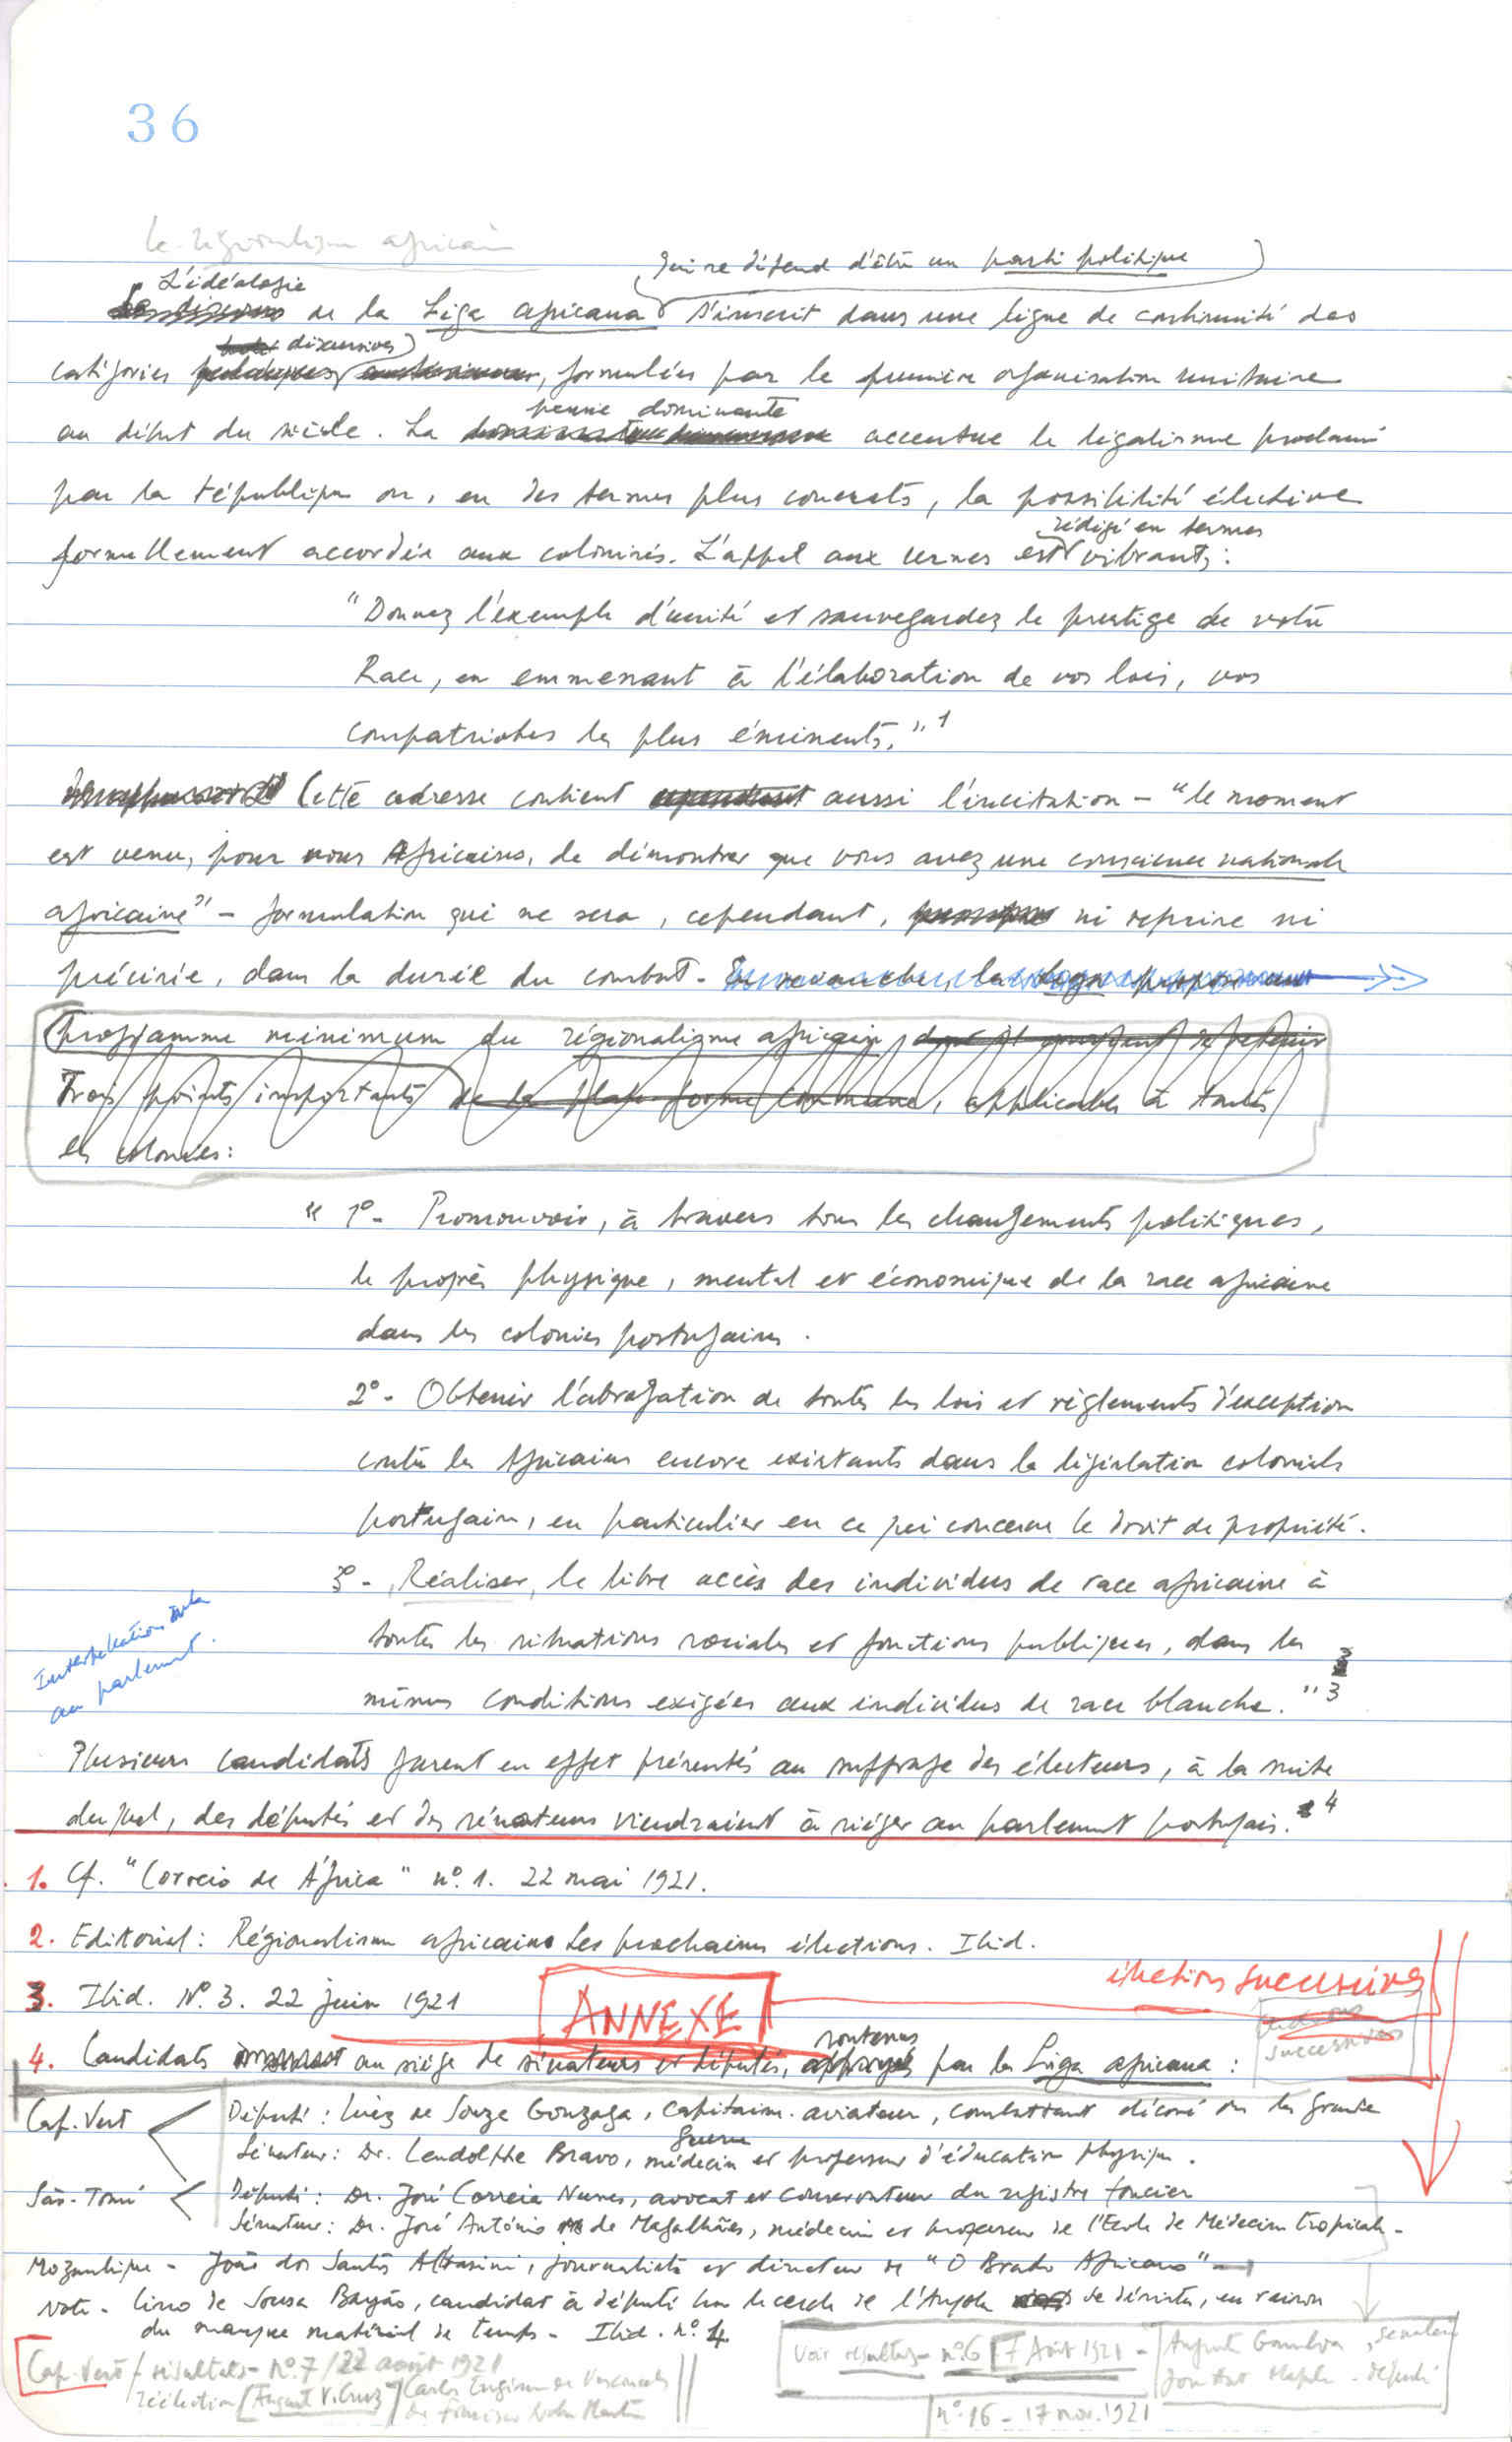 36
Le régionalisme africain
qui se défend d'être un parti politique
L'idéologie
de la Liga africana s'inscrit dans une ligne de continuité des
discursives
catégories formulées par la première organisation unitaire
pensée dominante
au début du siècle. La accentue le légalisme proclamé
par la république ou, en des termes plus concrets, la possibilité élective
rédigé en termes
formellement accordée aux colonisés. L'appel aux urnes est vibrants :
"Donnez l'exemple d'unité et sauvegardez le prestige de votre
Race, en emmenant à l'élaboration de vos lois, vos
compatriotes les plus éminents." 1
Cette adresse contient aussi l'incitation - "le moment
est venu, pour vous Africains, de démontrer que vous avez une conscience nationale
africaine" - formulation qui ne sera, cependant, ni reprise ni
précisée, dans la durée du combat. En revanche, la Liga propose un
programme minimum du régionalisme africain, dont il convient de retenir
Trois points importants de la plate-forme commune, applicables à toutes
les colonies :
" 1º - Promouvoir, à travers tous les changements politiques,
le progrès physique, mental et économique de la race africaine
dans les colonies portugaises.
2º - Obtenir l'abrogation de toutes les lois et règlements d'exception
contre les Africains encore existants dans la législation coloniale
portugaise, en particulier en ce qui concerne le droit de propriété.
3 - Réaliser, le libre accès des individus de race africaine à
toutes les situations sociales et fonctions publiques, dans les
mêmes conditions exigées aux individus de race blanche." 3
Interpellation
au parlement.
Plusieurs candidats furent en effet présentés au suffrage des électeurs, à la suite
duquel, des députés et des sénateurs viendraient à siéger au parlement portugais. 4
1. Cf. "Correio de África" nº. 1. 22 mai 1921.
2. Editorial : Régionalisme africain Les prochaines élections. Ibid.
3. Ibid. Nº. 3. 22 juin 1921
ANNEXE
élections successives
successives
soutenus
4. Candidats au siège de sénateurs et députés, par la Liga africana :
Cap-Vert
Député : Luiz de Souza Gonzaga, capitaine-aviateur, combattant décoré de la grande
guerre
Sénateur : Dr. Lendolphe Bravo, médecin et professeur d'éducation physique.
São-Tomé
Député : Dr. José Correia Nunes, avocat et conservateur du registre foncier
Sénateur : Dr. José António de Magalhães, médecin et professeur de l'Ecole de Médecine tropicale -
Mozambique - João dos Santos Albasini, journaliste et directeur de "O Brado Africano" -
Note - Lino de Sousa Bayão, candidat à député le cercle de l'Angola de désister, en raison
du manque matériel de temps - Ibid. nº. 4
Cap-Vert / résultats - Nº. 7 / 22 août 1921
réélection / August V. Cruz / Carlos Eugénio de Vasconcelos
Dr Francisco
Voir résultats - nº 6 7 Août 1921 - Augusto Gamboa, sénateur
député
nº 16 - 17 nov. 1921